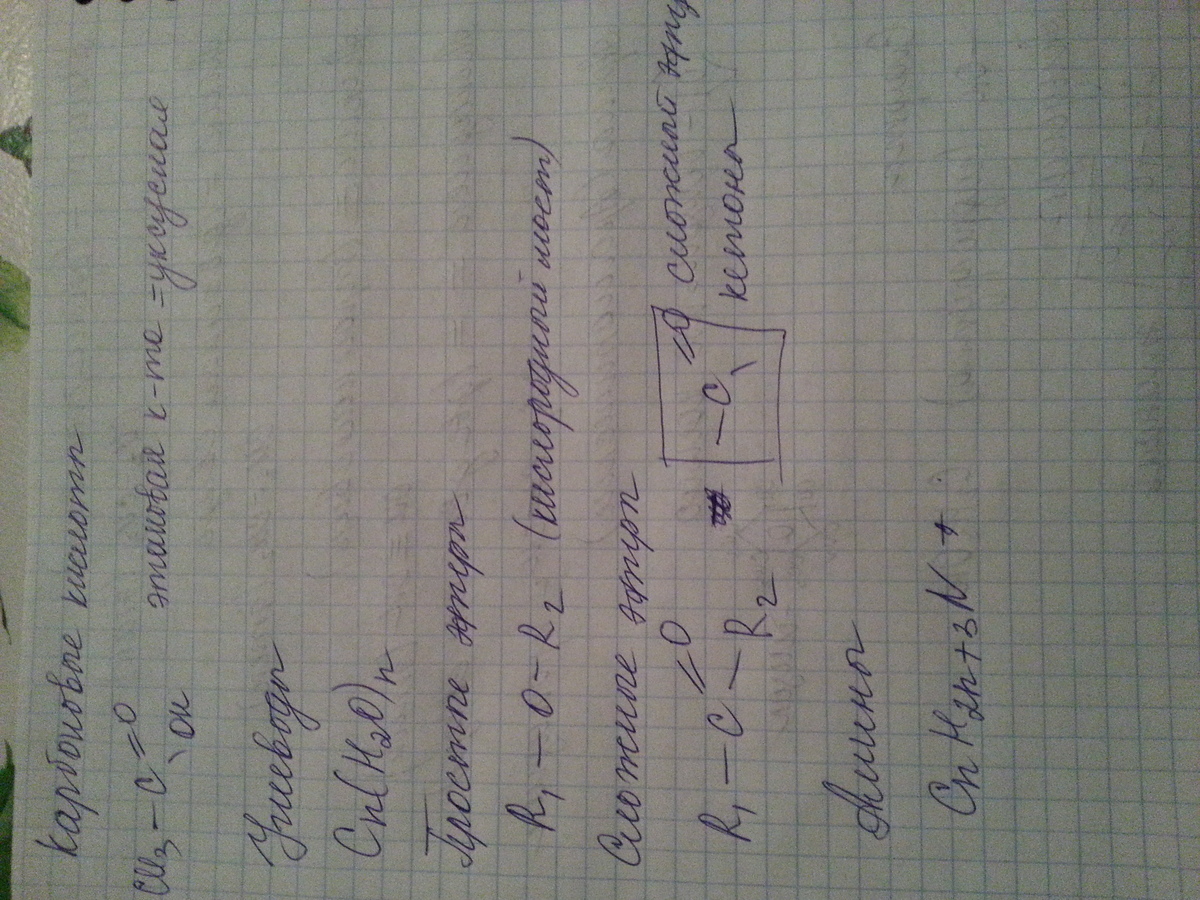 Карбоновые кислоты
CH₃ — C =O \ OH этановая к-та = уксусная
Углеводы
Cn(H₂O)n
Простые эфиры
R₁ — O — R₂ (кислородный мост)
Сложные эфиры
R₁ — C =O — R₂ — C =O \ сложный эфир
кетоны
Амины
CnH2n+3N